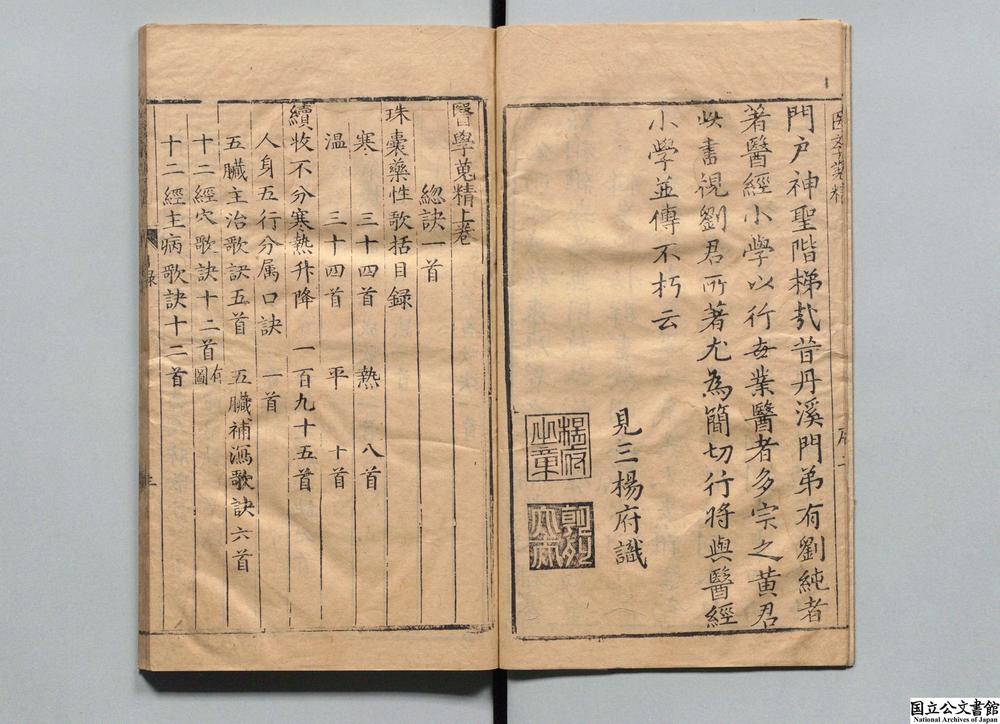 門户神聖階梯㢤昔丹溪門弟有劉純者
著醫經小學以行每業醫者多宗之黄君
此書視劉君所著尤為簡切行將與醫經
小學並傳不朽云
見三楊府識
楊府
之章
醫學蒐精上卷
緫訣一首
珠囊藥性歌括目録
寒 三十四首 熱 八首
温 三十四首 平 十首
續收不分寒熱升降 一百九十五首
人身五行分属口訣 一首
五臟主治歌訣五首 五臟補瀉歌訣六首
十二經穴歌訣十二首有圖
十二經主病歌訣十二首
国立公文書館
National Archives of Japan